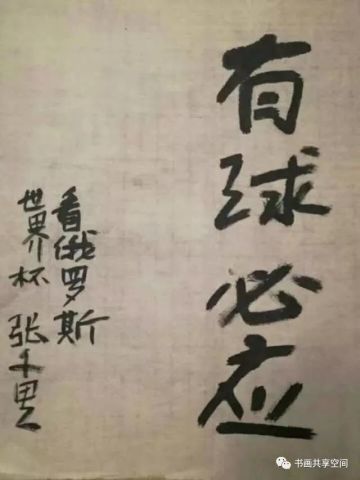 有球必应
看俄罗斯
世界杯 张千里
书画共享空间